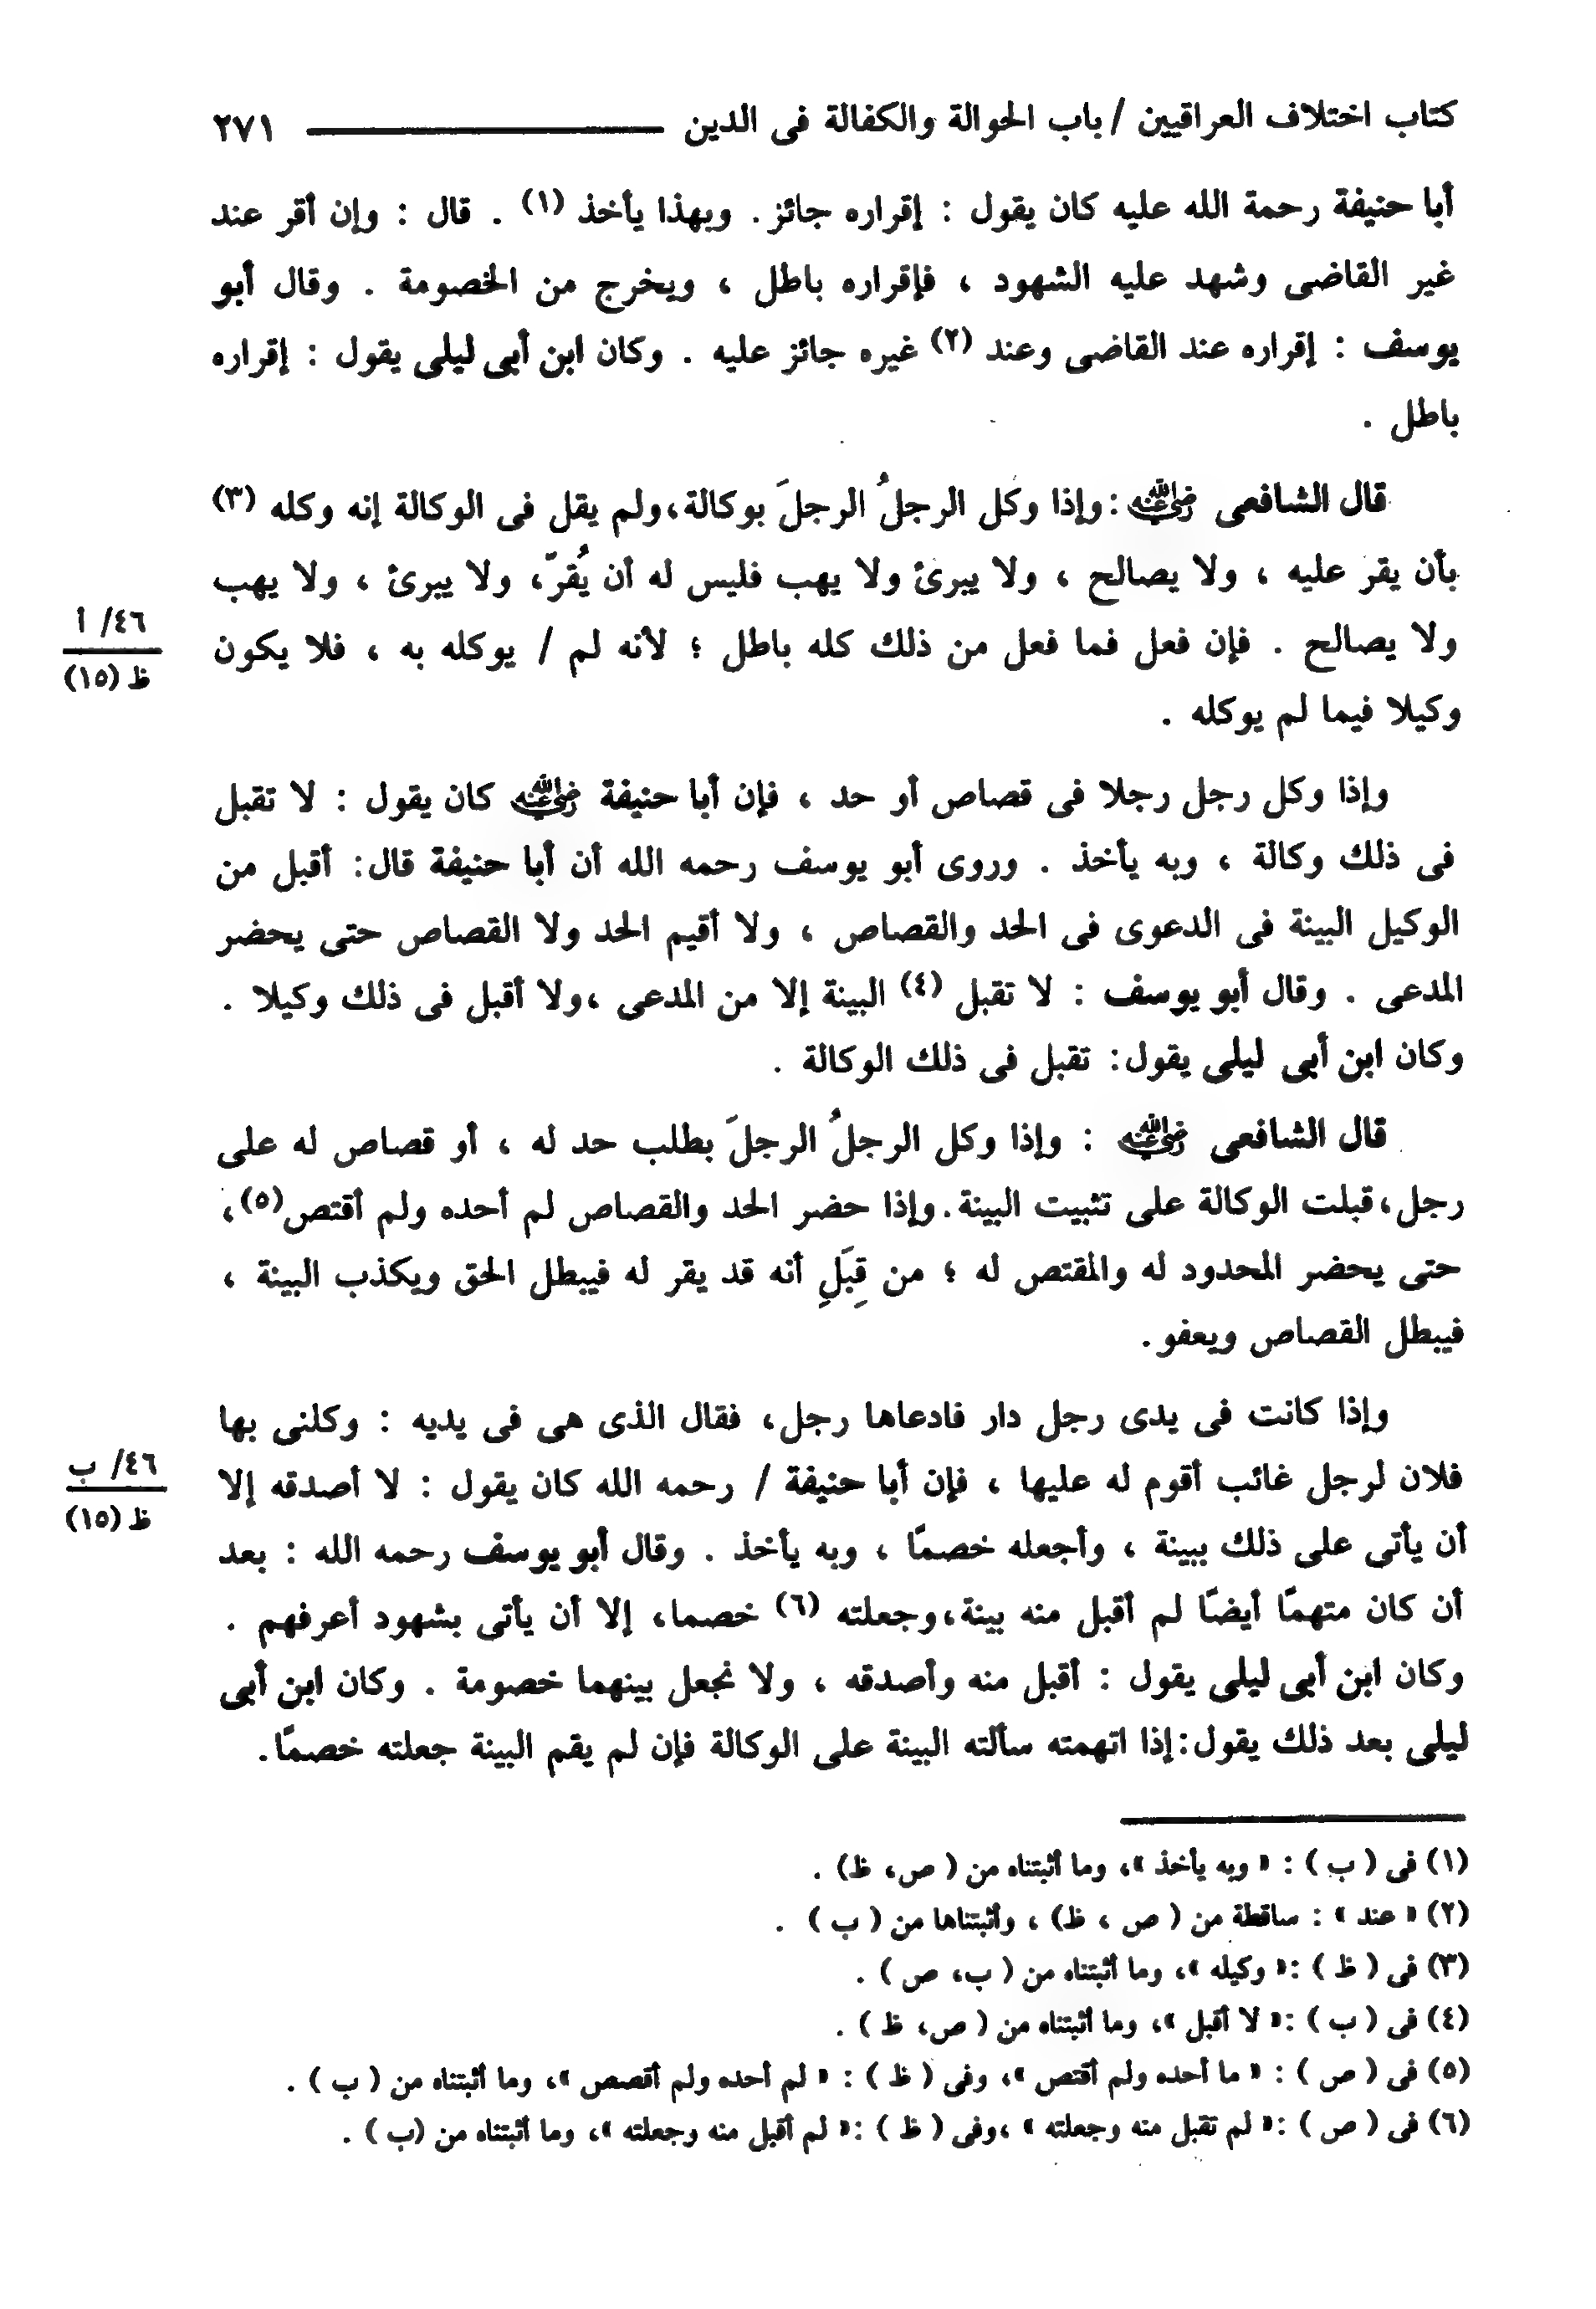 كتاب اختلاف العراقيين / باب الحوالة والكفالة فى الدين ٢٧١
أبا حنيفة رحمة الله عليه كان يقول : إقراره جائز. وبهذا يأخذ (١) . قال : وإن أقر عند
غير القاضى وشهد عليه الشهود ، فإقراره باطل ، ويخرج من الخصومة . وقال أبو
يوسف : إقراره عند القاضى وعند (٢) غيره جائز عليه . وكان ابن أبى ليلى يقول : إقراره
باطل .
قال الشافعى رضي الله عنه : وإذا وكل الرجلُ الرجلَ بوكالة، ولم يقل فى الوكالة إنه وكله (٣)
بأن يقر عليه ، ولا يصالح ، ولا يبرئ ولا يهب فليس له أن يُقرّ، ولا يبرئ ، ولا يهب
ولا يصالح . فإن فعل فما فعل من ذلك كله باطل ؛ لأنه لم / يوكله به ، فلا يكون
٤٦/ أ
ظ (١٥)
وكيلا فيما لم يوكله .
وإذا وكل رجل رجلا فى قصاص أو حد ، فإن أبا حنيفة رضي الله عنه كان يقول : لا تقبل
فى ذلك وكالة ، وبه يأخذ . وروى أبو يوسف رحمه الله أن أبا حنيفة قال: أقبل من
الوكيل البينة فى الدعوى فى الحد والقصاص ، ولا أقيم الحد ولا القصاص حتى يحضر
المدعى . وقال أبو يوسف : لا تقبل (٤) البينة إلا من المدعى ،ولا أقبل فى ذلك وكيلا .
وكان ابن أبى ليلى يقول: تقبل فى ذلك الوكالة .
قال الشافعى رضي الله عنه : وإذا وكل الرجلُ الرجلَ بطلب حد له ، أو قصاص له على
رجل، قبلت الوكالة على تثبيت البينة. وإذا حضر الحد والقصاص لم أحده ولم أقتص(٥)،
حتى يحضر المحدود له والمقتص له ؛ من قِبَلِ أنه قد يقر له فيبطل الحق ويكذب البينة ،
فيبطل القصاص ويعفو.
وإذا كانت فى يدى رجل دار فادعاها رجل، فقال الذى هى فى يديه : وكلنى بها
فلان لرجل غائب أقوم له عليها ، فإن أبا حنيفة / رحمه الله كان يقول : لا أصدقه إلا
٤٦/ ب
ظ (١٥)
أن يأتى على ذلك ببينة ، وأجعله خصمًا ، وبه يأخذ . وقال أبو يوسف رحمه الله : بعد
أن كان متهمًا أيضًا لم أقبل منه بينة،وجعلته (٦) خصما، إلا أن يأتى بشهود أعرفهم .
وكان ابن أبى ليلى يقول : أقبل منه وأصدقه ، ولا نجعل بينهما خصومة . وكان ابن أبى
ليلى بعد ذلك يقول:إذا اتهمته سألته البينة على الوكالة فإن لم يقم البينة جعلته خصمًا.
(١) فى ( ب ) : « وبه يأخذ »، وما أثبتناه من ( ص، ظ) .
(٢) « عند » : ساقطة من ( ص ، ظ) ، وأثبتناها من ( ب ) .
(٣) فى ( ظ ) :« وكيله »، وما أثبتناه من ( ب، ص ) .
(٤) فى ( ب ) :« لا أقبل »، وما أثبتناه من ( ص، ظ ) .
(٥) فى ( ص ) : « ما أحده ولم أقتص »، وفى ( ظ ) : « لم أحده ولم أقصص »، وما أثبتناه من ( ب ) .
(٦) فى ( ص ) :« لم تقبل منه وجعلته » ،وفى ( ظ ) :« لم أقبل منه وجعلته »، وما أثبتناه من (ب ) .